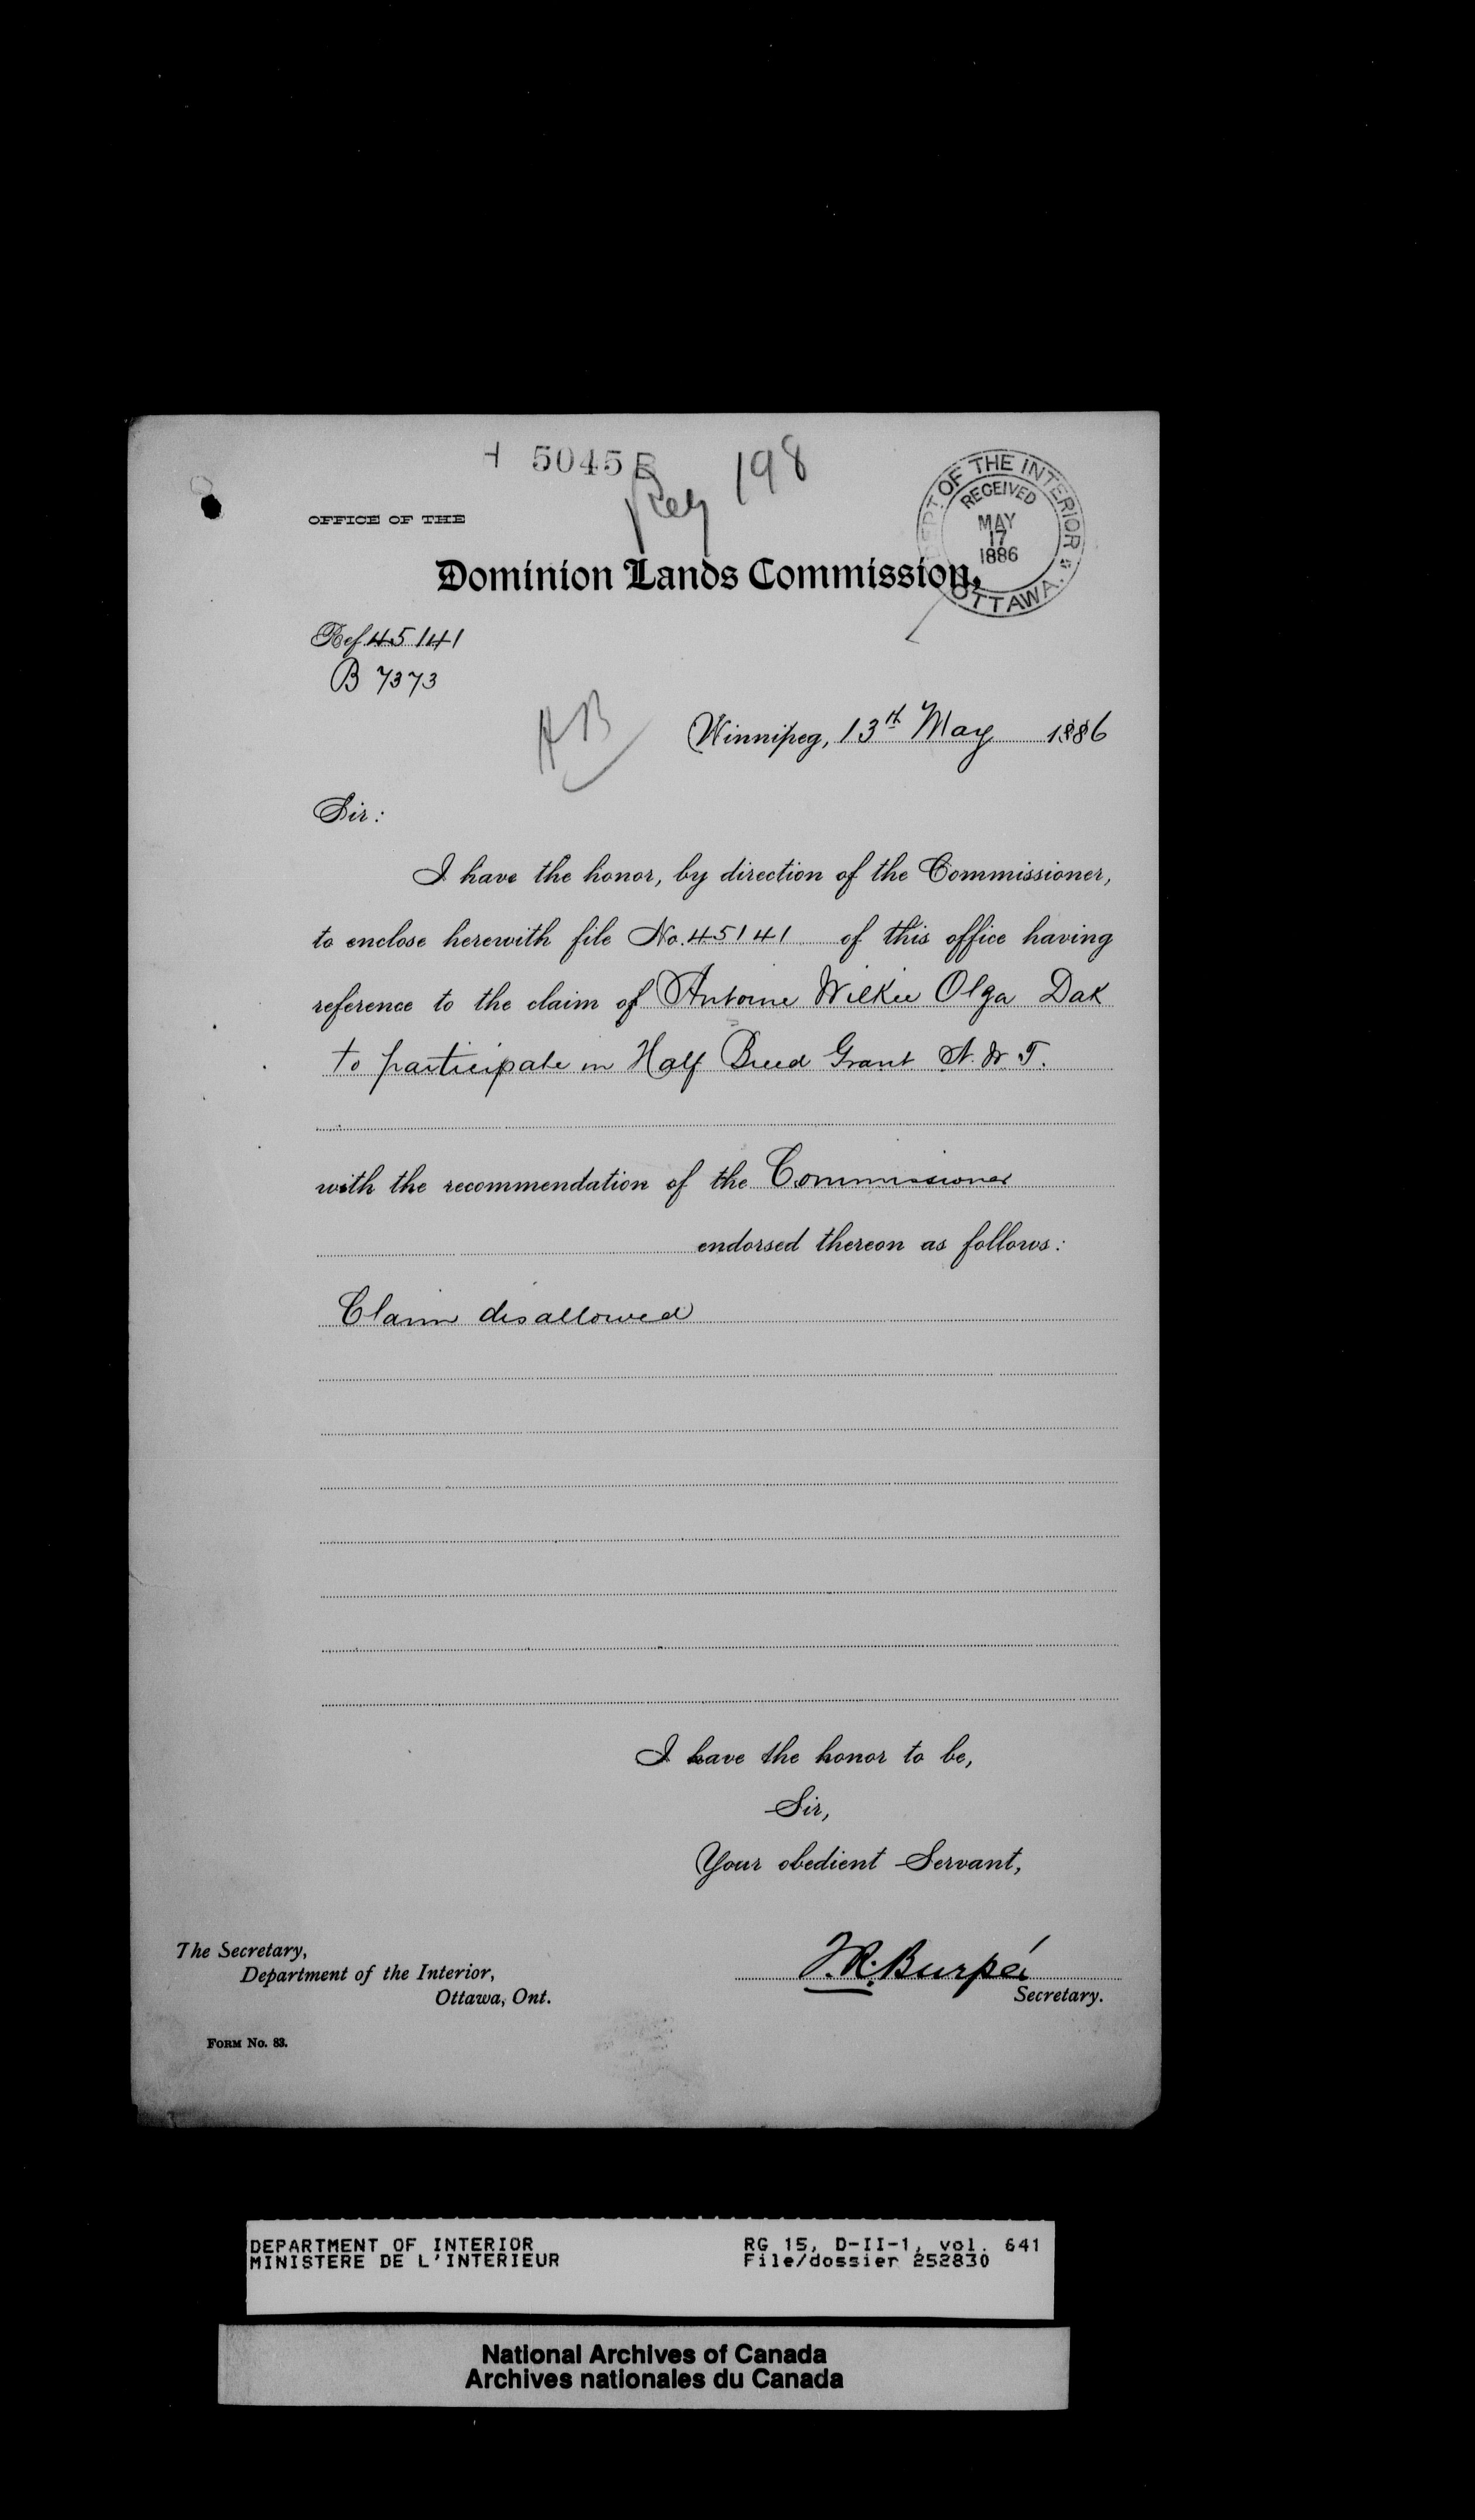 5045 198
Reg
OFFICE OF THE
Dominion Lands Commission,
DEPT OF THE INTERIOR
RECEIVED
MAY
17
1886
OTTAWA.
Ref. 45141
B 7373
HB
Winnipeg, 13th May 1886
Sir:
I have the honor, by direction of the Commissioner,
to enclose herewith file No. 45141 of this office having
reference to the claim of Antoine Wilkie Olga Dak
to participate in Half Breed Grant N. W. T.
with the recommendation of the Commissioner
endorsed thereon as follows:
Claim disallowed
I have the honor to be,
Sir,
Your obedient Servant,
The Secretary,
Department of the Interior,
Ottawa, Ont.
J.R. Burpé
Secretary.
FORM No. 83.
DEPARTMENT OF INTERIOR RG 15, D-II-1, vol. 641
MINISTERE DE L'INTERIEUR File/dossier 252830
National Archives of Canada
Archives nationales du Canada